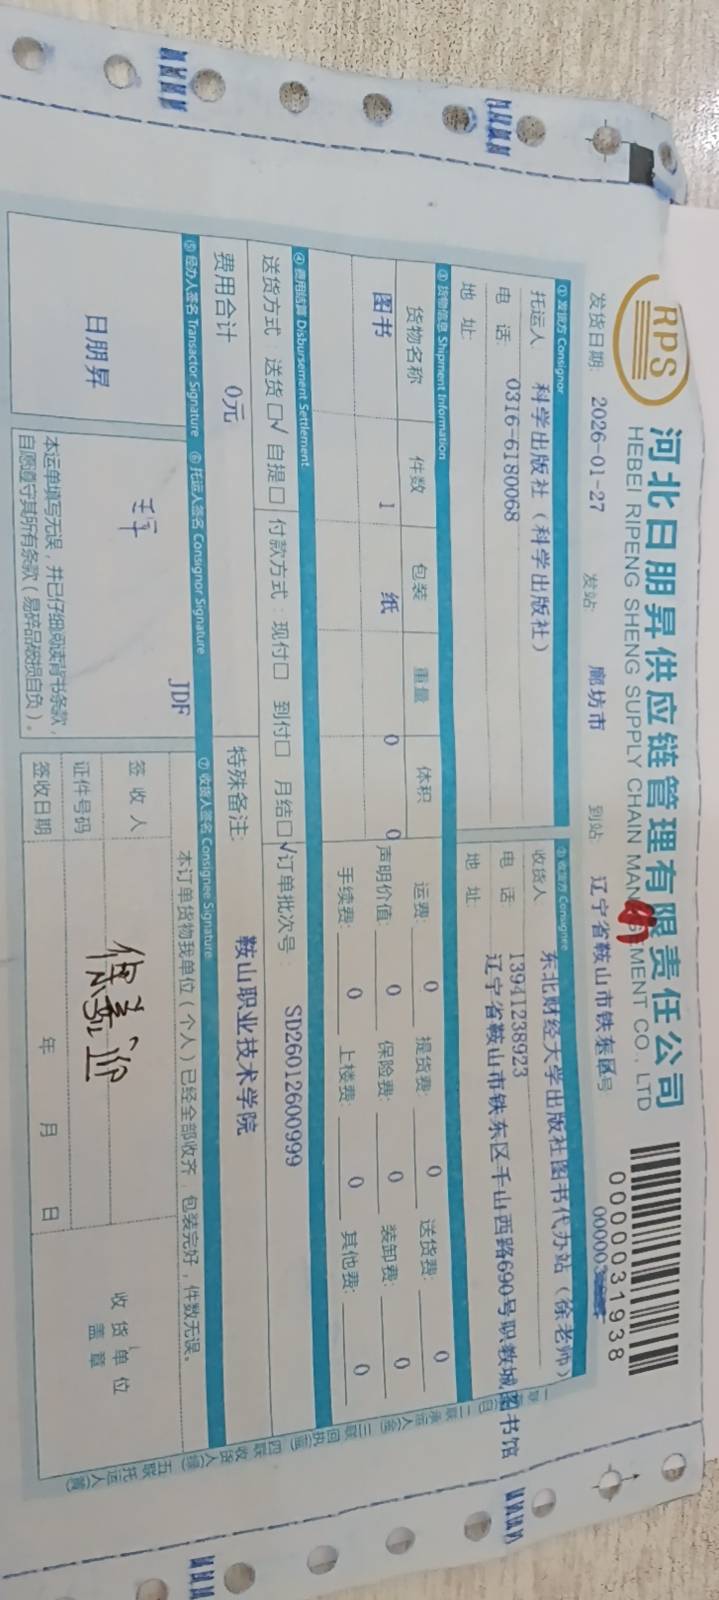 RPS
河北日朋昇供应链管理有限责任公司
HEBEI RIPENG SHENG SUPPLY CHAIN MANAGEMENT CO., LTD
0000031938
发货日期: 2026-01-27 发站: 廊坊市 到站: 辽宁省鞍山市铁东区
① 发货方 Consignor
托运人 科学出版社（科学出版社）
电 话: 0316-6180068
地 址:
② 收货方 Consignee
收货人 东北财经大学出版社图书代办站（徐老师）
电 话 13941238923
地 址: 辽宁省鞍山市铁东区千山西路690号职教城图书馆
③ 货物信息 Shipment Information
货物名称 件数 包装 重量 体积
图书 1 纸 0 0
运费: 0 提货费: 0 送货费: 0
声明价值: 0 保险费: 0 装卸费: 0
手续费: 0 上楼费: 0 其他费: 0
④ 费用结算 Disbursement Settlement
送货方式：送货□√ 自提□ 付款方式：现付□ 到付□ 月结□√ 订单批次号： SD26012600999
费用合计 0元 特殊备注: 鞍山职业技术学院
⑤ 经办人签名 Transactor Signature
日朋昇
⑥ 托运人签名 Consignor Signature
JDF
本运单填写无误，并已仔细阅读背书条款，
自愿遵守其所有条款（易碎品破损自负）。
⑦ 收货人签名 Consignee Signature
本订单货物我单位（个人）已经全部收齐，包装完好，件数无误。
签 收 人
证件号码
签收日期 年 月 日
收货单位
盖章